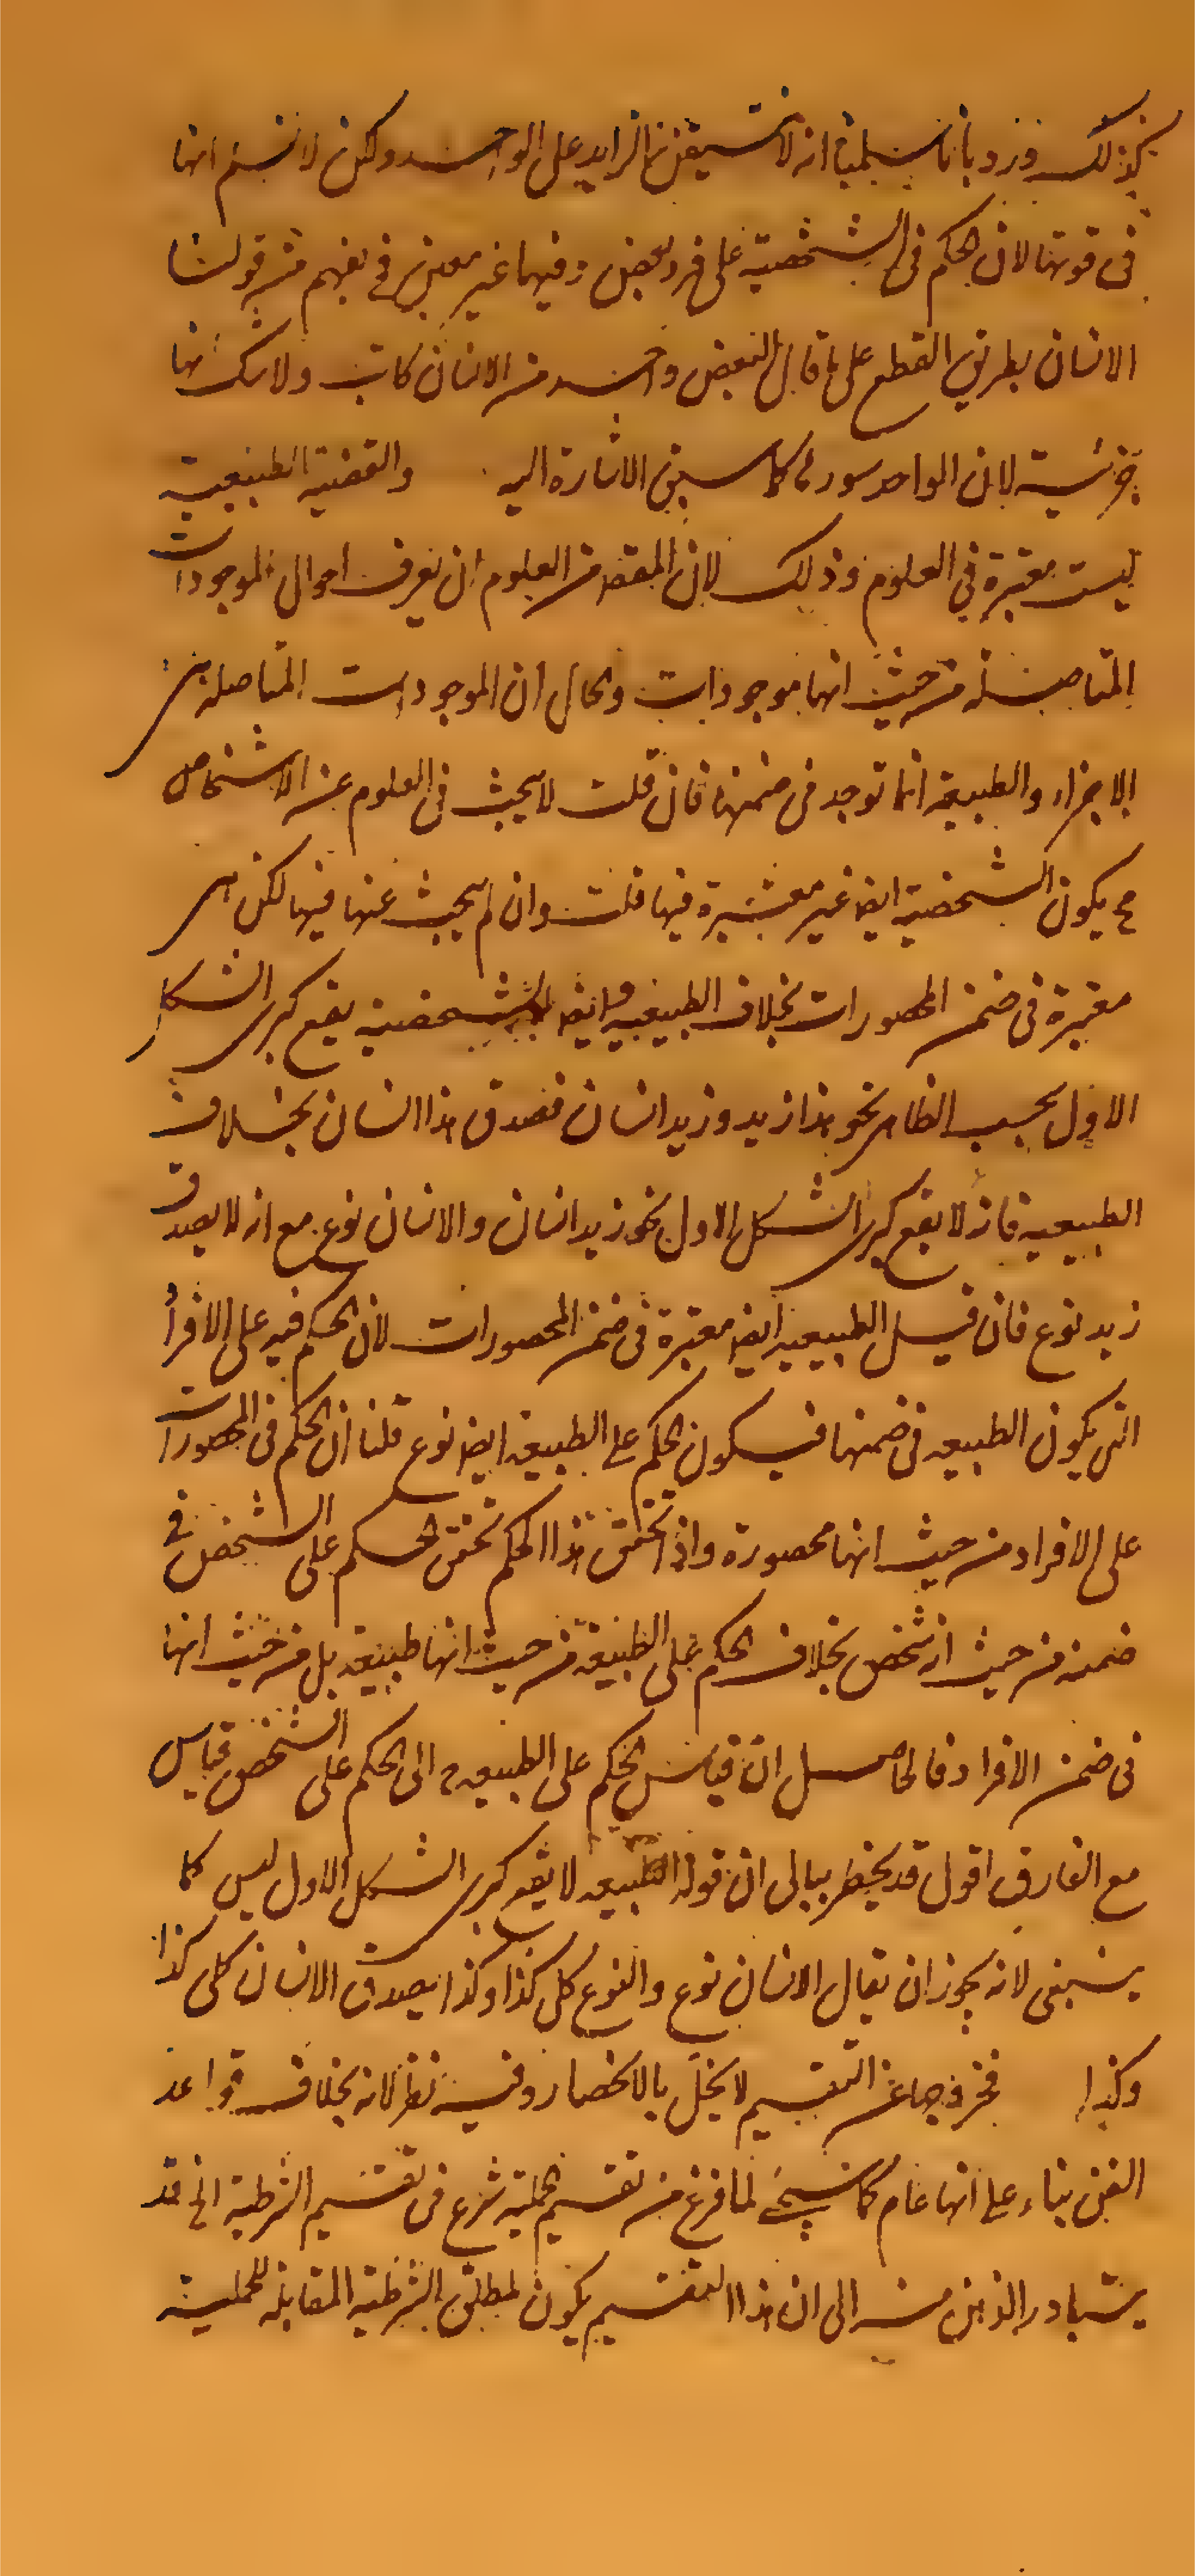 كذلك ورد بانا سلمنا انه لا تستيقن الزايد على الواحد ولكن لا نسلم انها
فى قوتها لان الحكم فى الشخصية على فرد بعض وفيها غير معين في يفهم من قولنا
الانسان بطريق القطع على ما قال البعض واحد من الانسان كاتب ولا شك انها
جزئية لان الواحد سور لها كما سبق الاشارة اليه والقضية الطبيعية
ليست معتبرة فى العلوم وذلك لان المقصد من العلوم ان يعرف احوال الموجودات
المتاصلة من حيث انها موجودات والحال ان الموجودات المتاصلة هى
الاجزاء والطبيعة انما توجد فى ضمنها فان قلت لا يبحث فى العلوم عن الاشخاص
فح يكون الشخصية ايضا غير معتبرة فيها قلت وان لم يبحث عنها فيها لكن هى
معتبرة فى ضمن المحصورات بخلاف الطبيعية وايضا الشخصية يقع كبرى الشكل
الاول بحسب الظاهر نحو هذا زيد وزيد انسان فصدق هذا انسان بخلاف
الطبيعية فانه لا يقع كبرى الشكل الاول نحو زيد انسان والانسان نوع مع انه لا يصدق
زيد نوع فان قيل الطبيعية ايضا معتبرة فى ضمن المحصورات لان الحكم فيه على الافراد
التى يكون الطبيعه فى ضمنها فيكون الحكم على الطبيعة ايضا نوع قلنا ان الحكم فى المحصورات
على الافراد من حيث انها محصورة واذا تحقق هذا الحكم تحقق الحكم على الشخص فى
ضمنه من حيث انه شخص بخلاف الحكم على الطبيعة من حيث انها طبيعة بل من حيث انها
فى ضمن الافراد فالحاصل ان قياس الحكم على الطبيعه الى الحكم على الشخص قياس
مع الفارق اقول قد يخطر ببالى ان قوله الطبيعه لا يقع كبرى الشكل الاول ليس كما
ينبغى لانه يجوز ان يقال الانسان نوع والنوع كلى كذا وكذا يصدق الانسان كلى كذا
وكذا فخروجها عن التقسيم لا يخل بالانحصار وفيه نظر لانه بخلاف قواعد
الفن بناء على انها عام كما سيجئ لما فرغ من تقسيم الحملية شرع فى تقسيم الشرطية الخ قد
يتبادر الذهن منه الى ان هذا التقسيم يكون لمطلق الشرطية المقابلة للحملية